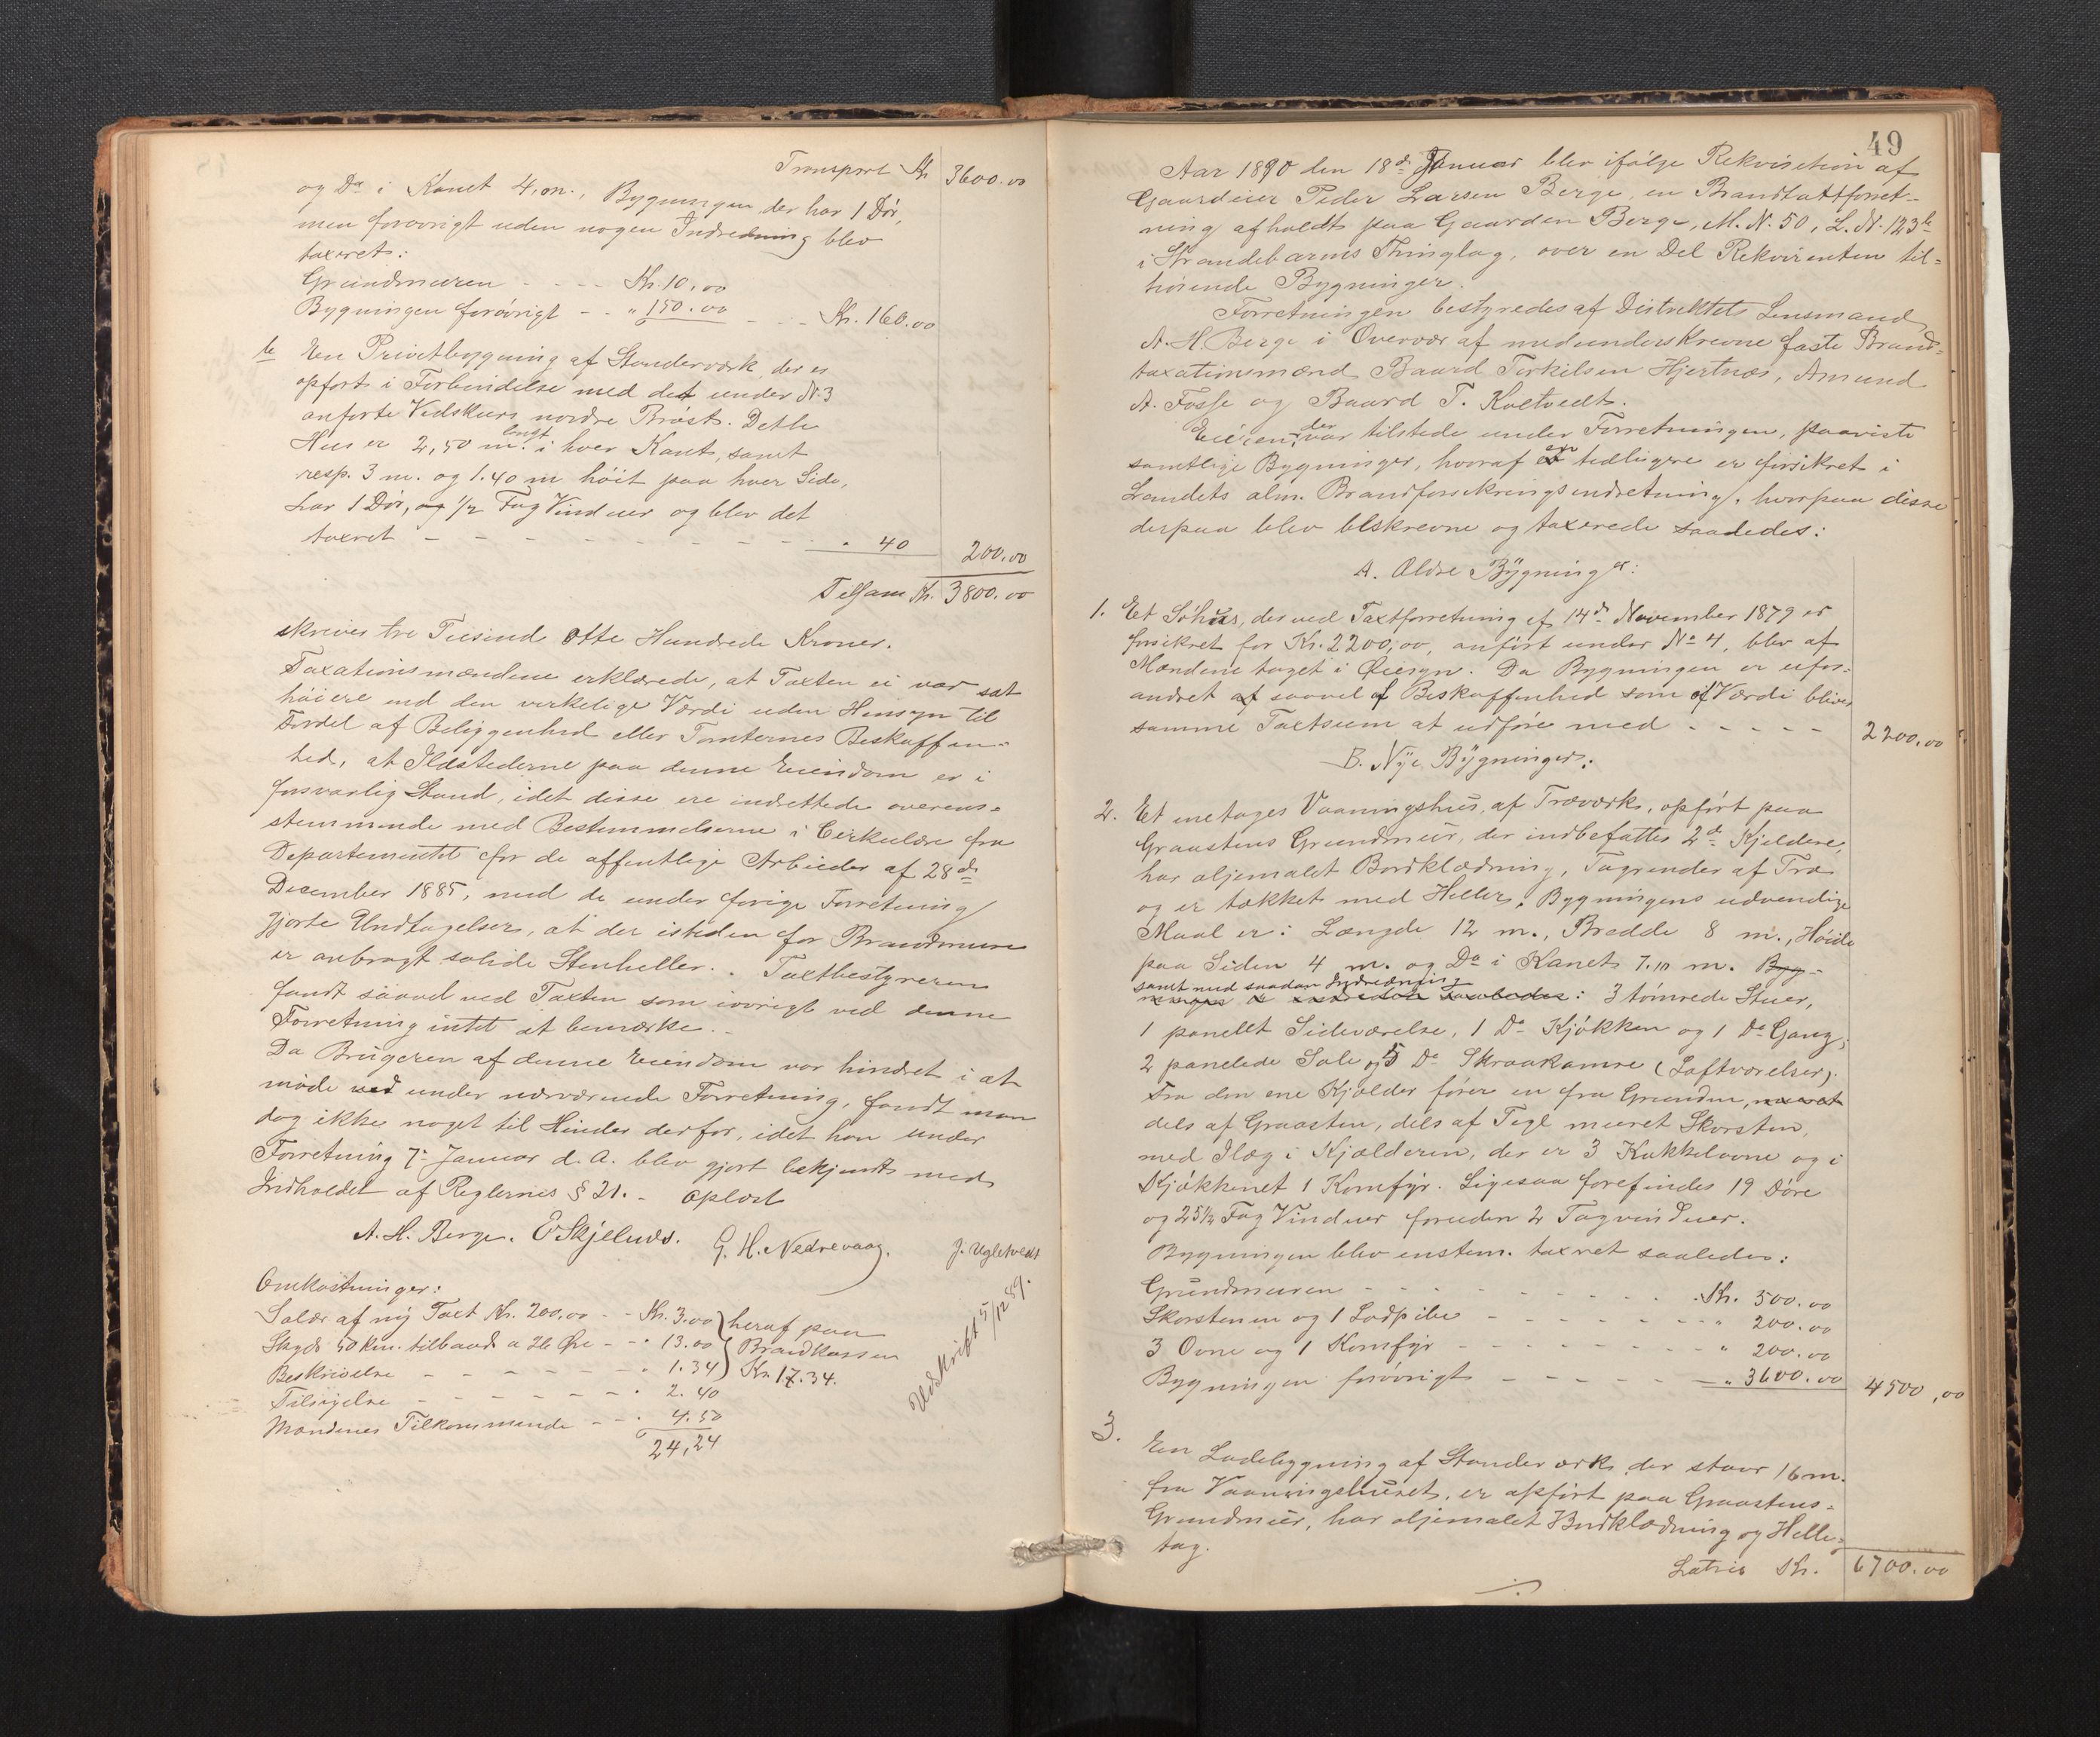 Transport Kr. 3600.00
og Do i Kanet 4 m., Bygningen, der har 1 Dör,
men forövrigt uden nogen Indredning blev
taxeret:
Grundmuren - - - - Kr. 10.00
Bygningen forövrigt - - " 150.00 - - - Kr. 160.00
b En Privetbygning af Stenderværk, der er
opfört i Forbindelse med det under N. 3
anförte Vedskurs nordre Bröst. Dette
Hus er 2,50 m. langt i hver Kant, samt
resp. 3 m. og 1.40 m höit paa hver Side,
har 1 Dör, og 1/2 Fag Vinduer og blev det
taxeret - - - - - - - - - - " 40 200.00
Tilsam Kr. 3800.00
skriver tre Tusind Otte Hundrede Kroner.
Taxationsmændene erklærede, at Taxten ei var sat
höiere end den virkelige Værdi uden Hensyn til
Fordel af Beliggenhed eller Tomternes Beskaffen-
hed, at Ildstederne paa denne Eiendom er i
forsvarlig Stand, idet disse ere indrettede overens-
stemmende med Bestemmelserne i Cirkulære fra
Departementet for de offentlige Arbeider af 28de
December 1885, med de under forrige Forretning
gjorte Undtagelser, at der istedenfor Brandmure
er anbragt solide Stenheller. Taxtbestyreren
fandt saavel ved Taxten som iövrigt ved denne
Forretning intet at bemærke. -
Da Brugeren af denne Eiendom var hindret i at
möde ved under nærværende Forretning, fandt man
dog ikke noget til Hinder derfor, idet han under
Forretning 7de Januar d. A. blev gjort bekjendt med
Indholdet af Reglernes § 21. - Oplæst
A. H. Berge. E Skjelnes. G. H. Nedrevaag. J. Ugletvedt
Omkostninger:
Salær af ny Taxt Kr. 200.00 - - Kr. 3.00 } heraf paa
Skyds 50 km. tilbaads a 26 Øre - - " 13.00 } Brandkassen
Beskrivelse - - - - - - " 1.34 } Kr. 17.34.
Tilsigelse - - - - - - - " 2.40
Mændenes Tilkommende - - " 4.50
24,24
Udskrift 5/12 89.
49
Aar 1890 den 18de Januar blev ifölge Rekvisition af
Gaardeier Peder Larsen Berge, en Brandtaxtforret-
ning afholdt paa Gaarden Berge, M. N. 50, L. N. 123b
i Strandebarms Thinglag, over en Del Rekvirenten til-
hörende Bygninger.
Forretningen bestyredes af Distriktets Lensmand,
A. H. Berge i Overvær af medunderskrevne faste Brand-
taxationsmænd Baard Torkilsen Hjertnæs, Amund
A. Fosse og Baard T. Koltvedt.
Eieren, der var tilstede under Forretningen, paaviste
samtlige Bygninger, hvoraf en tidligere er forsikret i
Landets alm. Brandforsikringsindretning, hvorpaa disse
derpaa blev beskrevne og taxerede saaledes:
A. Ældre Bygninger:
1. Et Söhus, der ved Taxtforretning af 14de November 1879 er
forsikret for Kr. 2200,00, anfört under No 4, blev af
Mændene taget i Øiesyn. Da Bygningen er ufor-
andret af saavel af Beskaffenhed som af Værdi bliver
samme Taxtsum at udföre med - - - - - 2200.00
B. Nye Bygninger:
2. Et enetages Vaaningshus, af Træværk, opfört paa
Graastens Grundmur, der indbefatter 2de Kjeldere,
har oljemalet Bordklædning, Tagrender af Træ
og er tækket med Heller. Bygningens udvendige
Maal er: Længde 12 m., Bredde 8 m., Höide
paa Siden 4 m. og Do i Kanet 7.10 m. Byg-
samt med saadan Indredning
ningen er indredede saaledes: 3 tömrede Stuer,
1 panelet Sideværelse, 1 Do Kjökken og 1 Do Gang,
2 panelede Sale og 5 Do Skraakamre (Loftværelser).
Fra den ene Kjælder förer en fra Grunden, muret
dels af Graasten, dels af Tegl muret Skorsten,
med Ilæg i Kjælderen, der er 3 Kakkelovne og i
Kjökkenet 1 Komfyr. Ligesaa forefindes 19 Döre
og 25 1/2 Fag Vinduer foruden 2 Tagvinduer.
Bygningen blev enstem. taxeret saaledes:
Grundmuren - - - - - - - - - Kr. 500.00
Skorstenen og 1 Lodpibe - - - - - - - " 200.00
3 Ovne og 1 Komfyr - - - - - - - - " 200.00
Bygningen forövrigt - - - - - - " 3600.00 4500,00
3.
En Ladebygning af Stenderværk, der staar 16 m.
fra Vaaningshuset, er opfört paa Graastens-
Grundmur, har oljemalet Bordklædning og Helle-
tag.
Latris Kr. 6700.00